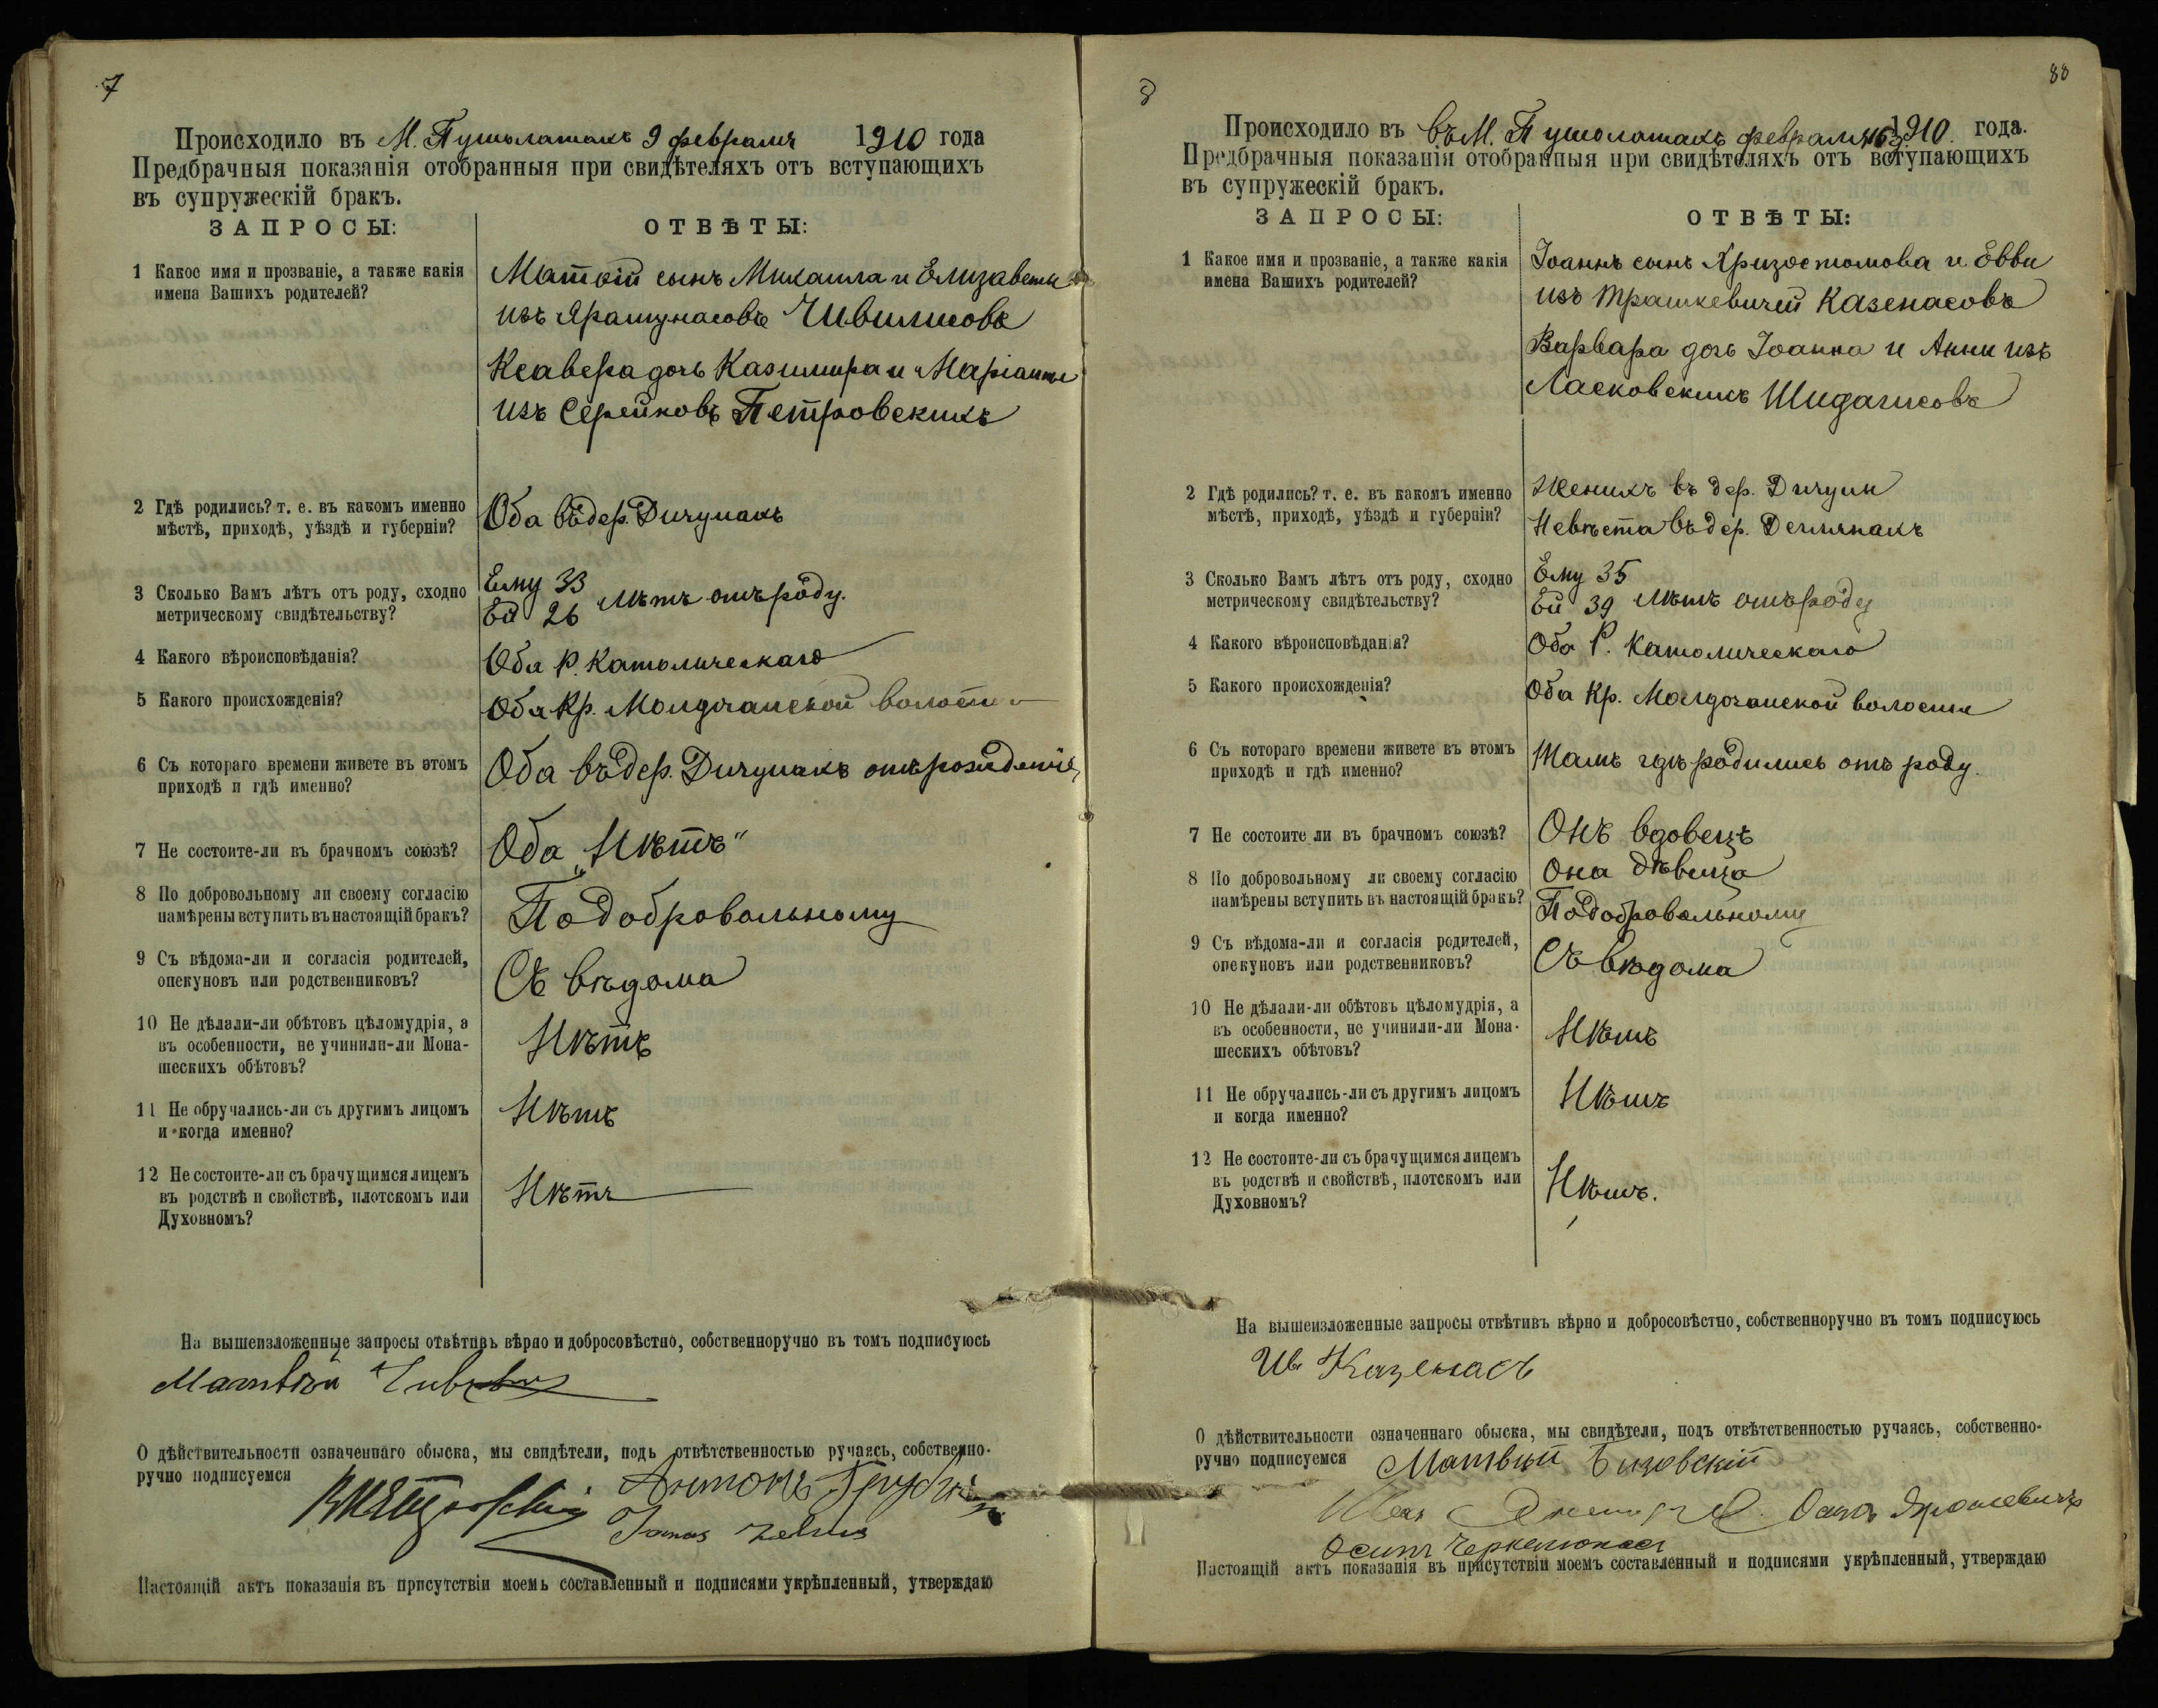 7
Происходило въ М. Пушолатахъ 9 февраля 1910 года
Предбрачныя показанія отобранныя при свидѣтеляхъ отъ вступающихъ
въ супружескій бракъ.
ЗАПРОСЫ: ОТВѢТЫ:
1 Какое имя и прозваніе, а также какія
имена Вашихъ родителей?
Матвій сынъ Михаила и Елизаветы
изъ Ярашунасовъ Чивилисовъ
Ксавера дочь Казимира и Маріанны
изъ Серейковъ Петровскихъ
2 Гдѣ родились? т. е. въ какомъ именно
мѣстѣ, приходѣ, уѣздѣ и губерніи?
Оба въ дер. Дичунахъ
3 Сколько Вамъ лѣтъ отъ роду, сходно
метрическому свидѣтельству?
Ему 33
Ей 26 лѣтъ отъ роду.
4 Какого вѣроисповѣданія?
Оба Р. Католическаго
5 Какого происхожденія?
Оба Кр. Молдочанской волости
6 Съ котораго времени живете въ этомъ
приходѣ и гдѣ именно?
Оба въ дер. Дичунахъ отъ рожденія
7 Не состоите-ли въ брачномъ союзѣ?
Оба „Нѣтъ"
8 По добровольному ли своему согласію
намѣрены вступить въ настоящій бракъ?
По добровольному
9 Съ вѣдома-ли и согласія родителей,
опекуновъ или родственниковъ?
Съ вѣдома
10 Не дѣлали-ли обѣтовъ цѣломудрія, а
въ особенности, не учинили-ли Мона-
шескихъ обѣтовъ?
Нѣтъ
11 Не обручались-ли съ другимъ лицомъ
и когда именно?
Нѣтъ
12 Не состоите-ли съ брачущимся лицемъ
въ родствѣ и свойствѣ, плотскомъ или
Духовномъ?
Нѣтъ
На вышеизложенные запросы отвѣтивъ вѣрно и добросовѣстно, собственноручно въ томъ подписуюсь
Матвѣй
О дѣйствительности означеннаго обыска, мы свидѣтели, подъ отвѣтственностью ручаясь, собственно-
ручно подписуемся
Антонъ
Настоящій актъ показанія въ присутствіи моемъ составленный и подписями укрѣпленный, утверждаю
8
88
Происходило въ въ М. Пушолатахъ февраля 16 1910 года.
Предбрачныя показанія отобранныя при свидѣтеляхъ отъ вступающихъ
въ супружескій бракъ.
ЗАПРОСЫ: ОТВѢТЫ:
1 Какое имя и прозваніе, а также какія
имена Вашихъ родителей?
Іоаннъ сынъ Хризостомова и Еввы
изъ Трашкевичей Казенасовъ
Варвара дочь Іоанна и Анны изъ
Ласковскихъ Шидагисовъ
2 Гдѣ родились? т. е. въ какомъ именно
мѣстѣ, приходѣ, уѣздѣ и губерніи?
Женихъ въ дер. Дичуны
Невѣста въ дер.
3 Сколько Вамъ лѣтъ отъ роду, сходно
метрическому свидѣтельству?
Ему 35
Ей 39 лѣтъ отъ роду
4 Какого вѣроисповѣданія?
Оба Р. Католическаго
5 Какого происхожденія?
Оба Кр. Молдочанской волости
6 Съ котораго времени живете въ этомъ
приходѣ и гдѣ именно?
Тамъ гдѣ родились отъ роду.
7 Не состоите ли въ брачномъ союзѣ?
Онъ вдовецъ
Она дѣвица
8 По добровольному ли своему согласію
намѣрены вступить въ настоящій бракъ?
По добровольному
9 Съ вѣдома-ли и согласія родителей,
опекуновъ или родственниковъ?
Съ вѣдома
10 Не дѣлали-ли обѣтовъ цѣломудрія, а
въ особенности, не учинили-ли Мона-
шескихъ обѣтовъ?
Нѣтъ
11 Не обручались-ли съ другимъ лицомъ
и когда именно?
Нѣтъ
12 Не состоите-ли съ брачущимся лицемъ
въ родствѣ и свойствѣ, плотскомъ или
Духовномъ?
Нѣтъ.
На вышеизложенные запросы отвѣтивъ вѣрно и добросовѣстно, собственноручно въ томъ подписуюсь
Ив Казенасъ
О дѣйствительности означеннаго обыска, мы свидѣтели, подъ отвѣтственностью ручаясь, собственно-
ручно подписуемся Матвѣй Бизовскій
Осипъ
Настоящій актъ показанія въ присутствіи моемъ составленный и подписями укрѣпленный, утверждаю